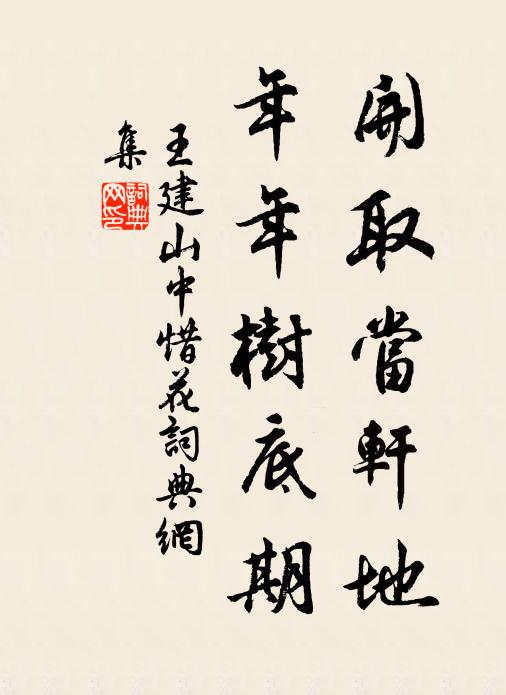 開取當軒地
年年樹底期
王建山中惜花詞典網
集
詞典
网印